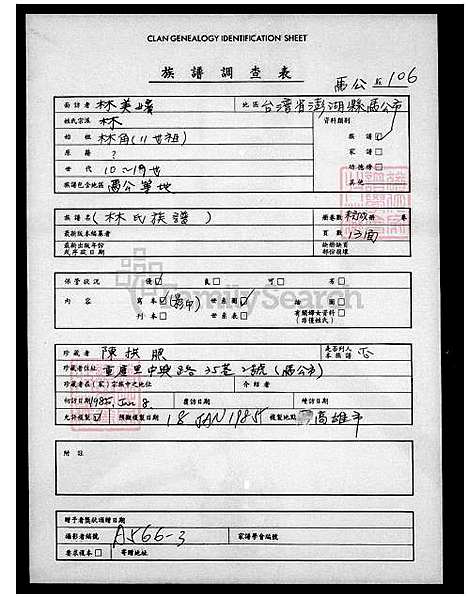 CLAN GENEALOGY IDENTIFICATION SHEET
族譜調查表
馬公 106
面訪者 林美 地區 台灣省澎湖縣馬公市
姓氏宗派 林 資料類別
始祖 林角(11世祖) 族譜
原籍 ? 家譜
世代 10~19世 功德榜
族譜包含地區 馬公等地 其他
族譜名(林氏族譜) 冊卷數 冊 卷
最新版本編纂者 頁數 13面
最新出版年份或年歲日期 缺册缺頁部份損壞
保管狀況 優 良 可 劣
內容 寫本(影印) 世系圖 插圖
刊本 世系表 有關婦女資料(非僅姓氏)
FamilySearch
珍藏者 陳拱照 是否列入本族譜 否
珍藏者住址 重慶里中興路35巷2號(馬公市)
珍藏者在(家)宗族中之地位 介紹者
初訪日期 1985, Jan 8 覆訪日期 續訪日期
允許複製 預擬複製日期 18 JAN 1985 複製地點 高雄市
附註
贈予者獎狀頒贈日期
攝影者編號 A566-3 家譜學會編號
要求複本 寄贈地址